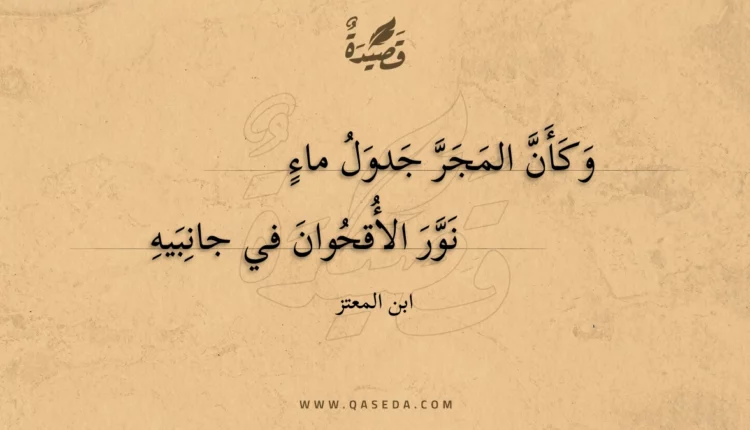 قَصِيْدَةٌ
وَكَأَنَّ المَجَرَّ جَدوَلُ ماءٍ
نَوَّرَ الأُقحُوانَ في جانِبَيهِ
ابن المعتز
WWW.QASEDA.COM